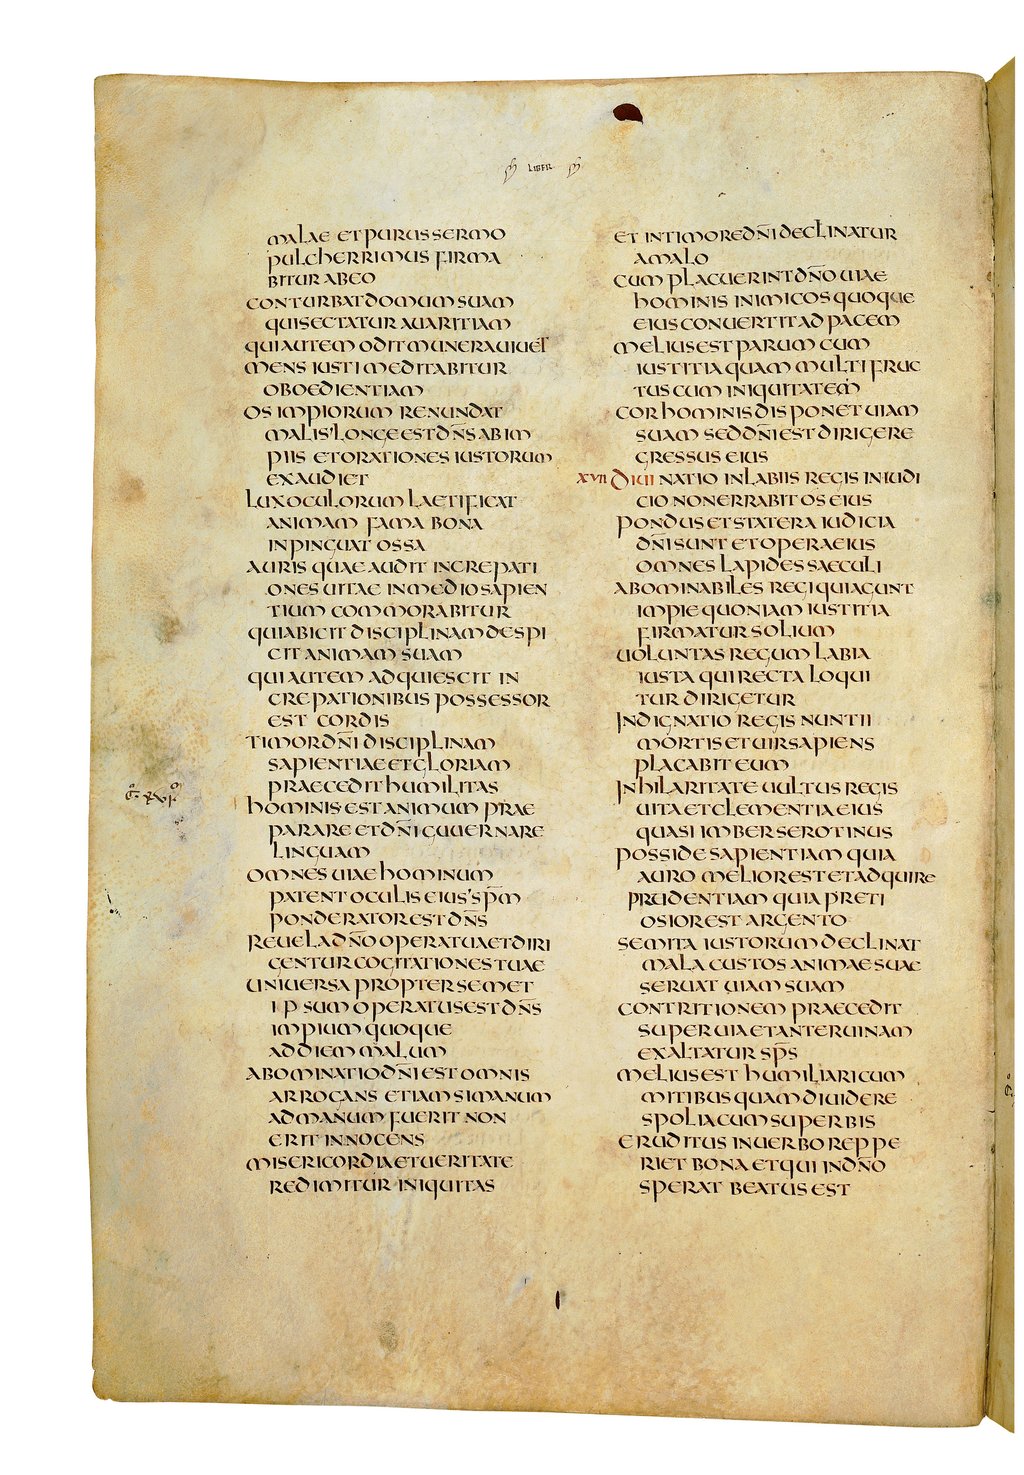 LIBER
malae et purus sermo
pulcherrimus firma
bitur ab eo
conturbat domum suam
qui sectatur avaritiam
qui autem odit munera vivet
mens iusti meditabitur
oboedientiam
os impiorum renundat
malis longe est dn̄s ab im
piis et orationes iustorum
exaudiet
lux oculorum laetificat
animam fama bona
inpinguat ossa
auris quae audit increpati
ones vitae in medio sapien
tium commorabitur
qui abicit disciplinam despi
cit animam suam
qui autem adquiescit in
crepationibus possessor
est cordis
timor dn̄i disciplinam
sapientiae et gloriam
praecedit humilitas
hominis est animum prae
parare et dn̄i guvernare
linguam
omnes viae hominum
patent oculis eius sp̄m
ponderator est dn̄s
revela dn̄o opera tua et diri
gentur cogitationes tuae
universa propter semet
ipsum operatus est dn̄s
impium quoque
ad diem malum
abominatio dn̄i est omnis
arrogans etiam si manum
ad manum fuerit non
erit innocens
misericordia et veritate
redimitur iniquitas
et in timore dn̄i declinatur
a malo
cum placuerint dn̄o viae
hominis inimicos quoque
eius convertit ad pacem
melius est parum cum
iustitia quam multi fruc
tus cum iniquitatem
cor hominis disponet viam
suam sed dn̄i est dirigere
gressus eius
xvii divinatio in labiis regis in iudi
cio non errabit os eius
pondus et statera iudicia
dn̄i sunt et opera eius
omnes lapides saeculi
abominabiles regi qui agunt
impie quoniam iustitia
firmatur solium
voluntas regum labia
iusta qui recta loqui
tur dirigetur
indignatio regis nuntii
mortis et vir sapiens
placabit eum
in hilaritate vultus regis
vita et clementia eius
quasi imber serotinus
posside sapientiam quia
auro melior est et adquire
prudentiam quia preti
osior est argento
semita iustorum declinat
mala custos animae suae
servat viam suam
contritionem praecedit
superuia et ante ruinam
exaltatur sp̄s
melius est humiliari cum
mitibus quam dividere
spolia cum superbis
eruditus in verbo reppe
riet bona et qui in dn̄o
sperat beatus est